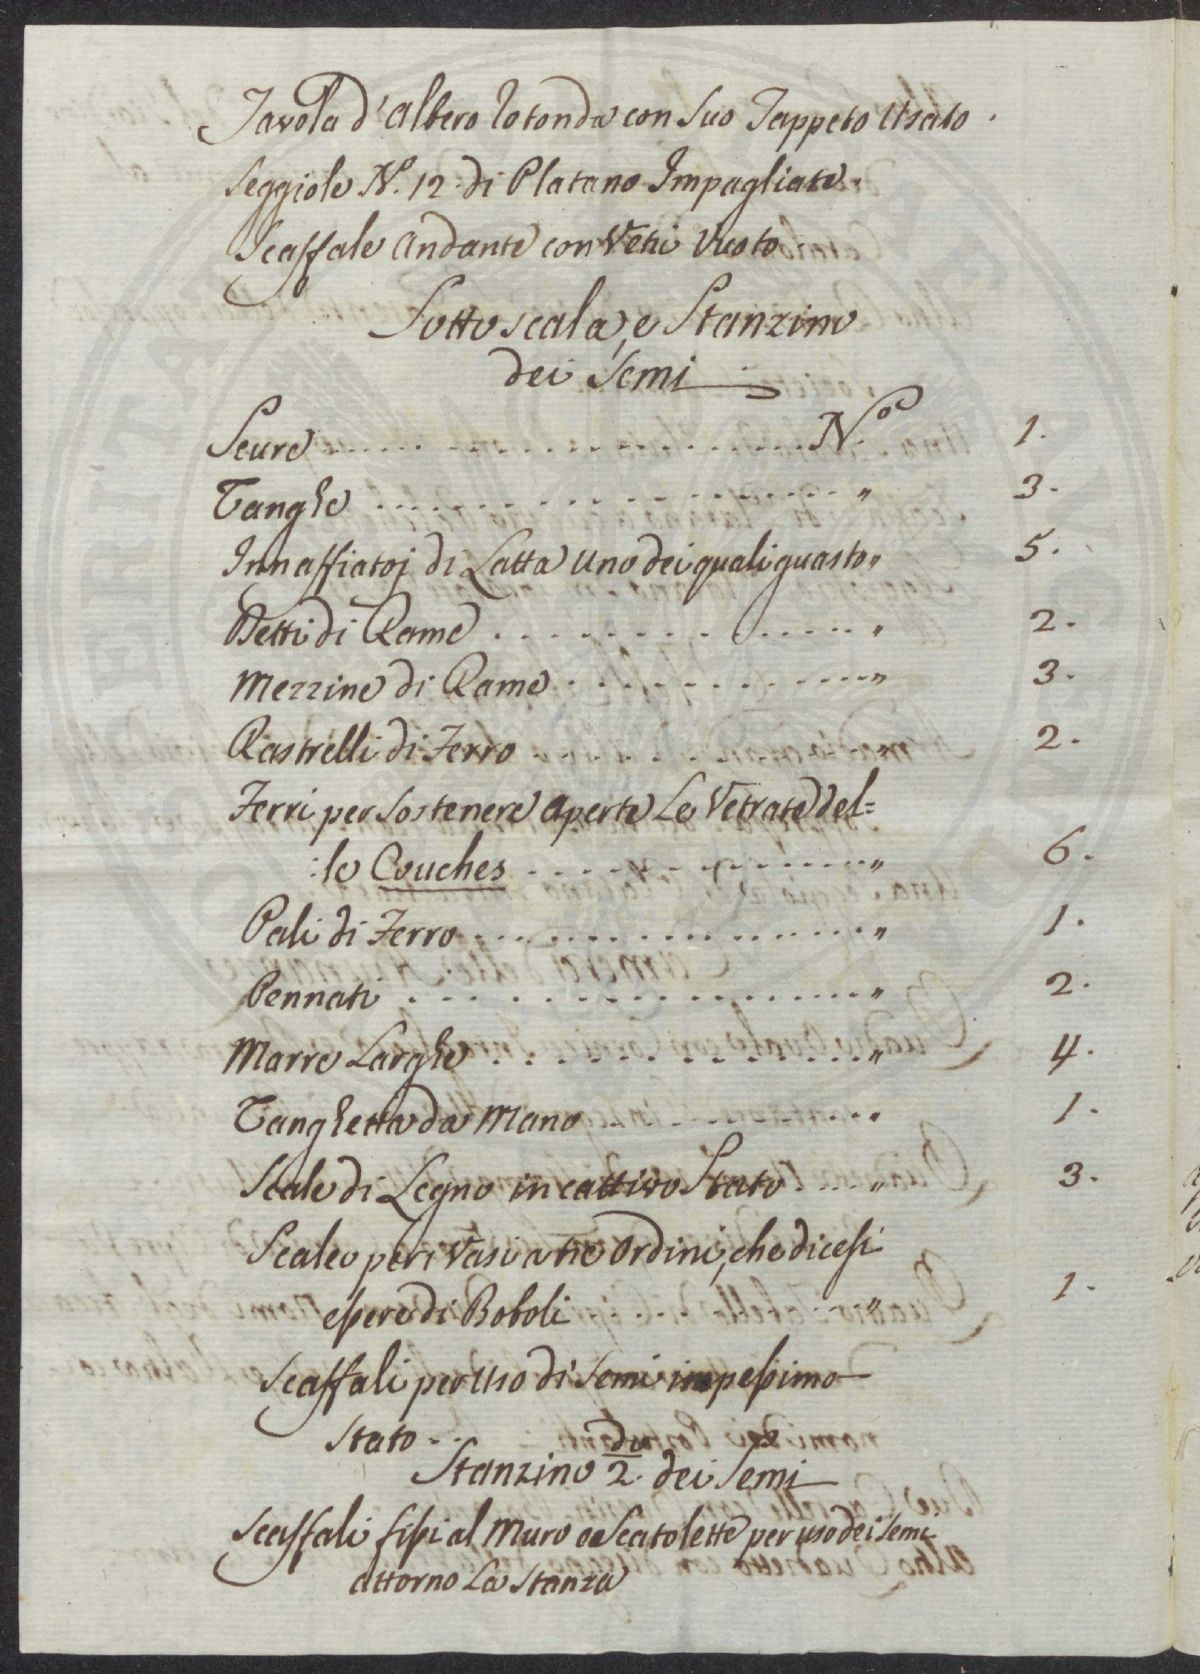 Tavola d'albero rotonda con suo Tappeto Usato.
Seggiole N. 12. di Platano Impagliate.
Scaffale andante con Vetri Vuoto
Sotto scala, e Stanzino
dei Semi
Scure .......... N.° 1.
Vanghe .......... " 3.
Innaffiatoj di Latta uno dei quali guasto " 5.
Detti di Rame .......... " 2.
Mezzine di Rame .......... " 3.
Rastrelli di Ferro .......... " 2.
Ferri per sostenere aperte Le Vetrate del=
:le Couches .......... " 6.
Pali di Ferro .......... " 1.
Pennati .......... " 2.
Marre Larghe .......... " 4.
Vanghetta da Mano .......... " 1.
Scale di Legno in cattivo Stato .... " 3.
Scaleo per i Vasi a tre Ordini, che dicesi
essere di Boboli .......... " 1.
Scaffali per Uso di Semi in pessimo
Stato ..
Stanzino 2.do dei Semi
Scaffali fissi al Muro e Scatolette per uso dei Semi
attorno La Stanza